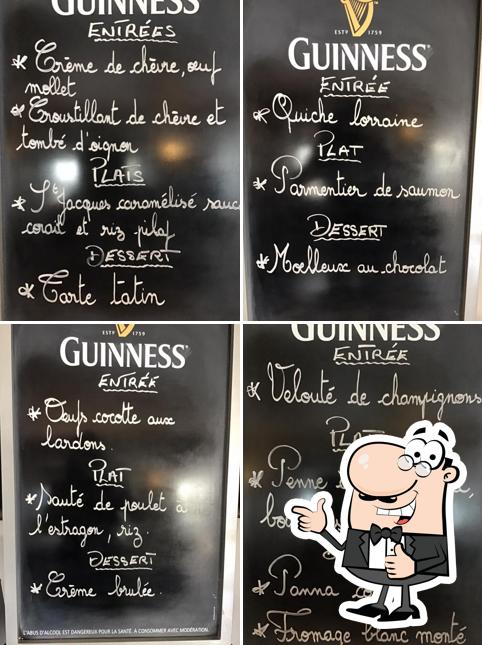 GUINNESS
ENTRÉES
* Crème de chèvre, œuf
mollet
* Croustillant de chèvre et
tombé d'oignon
PLATS
* St Jacques caramélisé sauc
corail et riz pilaf
DESSERT
* Tarte Tatin
ESTD 1759
GUINNESS
ENTRÉE
* Quiche lorraine
PLAT
* Parmentier de saumon
DESSERT
* Moelleux au chocolat
ESTD 1759
GUINNESS
ENTRÉE
* Œufs cocotte aux
lardons.
PLAT
* Sauté de poulet à
l'estragon, riz.
DESSERT
* Crème brulée.
L'ABUS D'ALCOOL EST DANGEREUX POUR LA SANTÉ. À CONSOMMER AVEC MODÉRATION.
GUINNESS
ENTRÉE
* Velouté de champignons
PLAT
* Penne
* Panna
* Fromage blanc monté